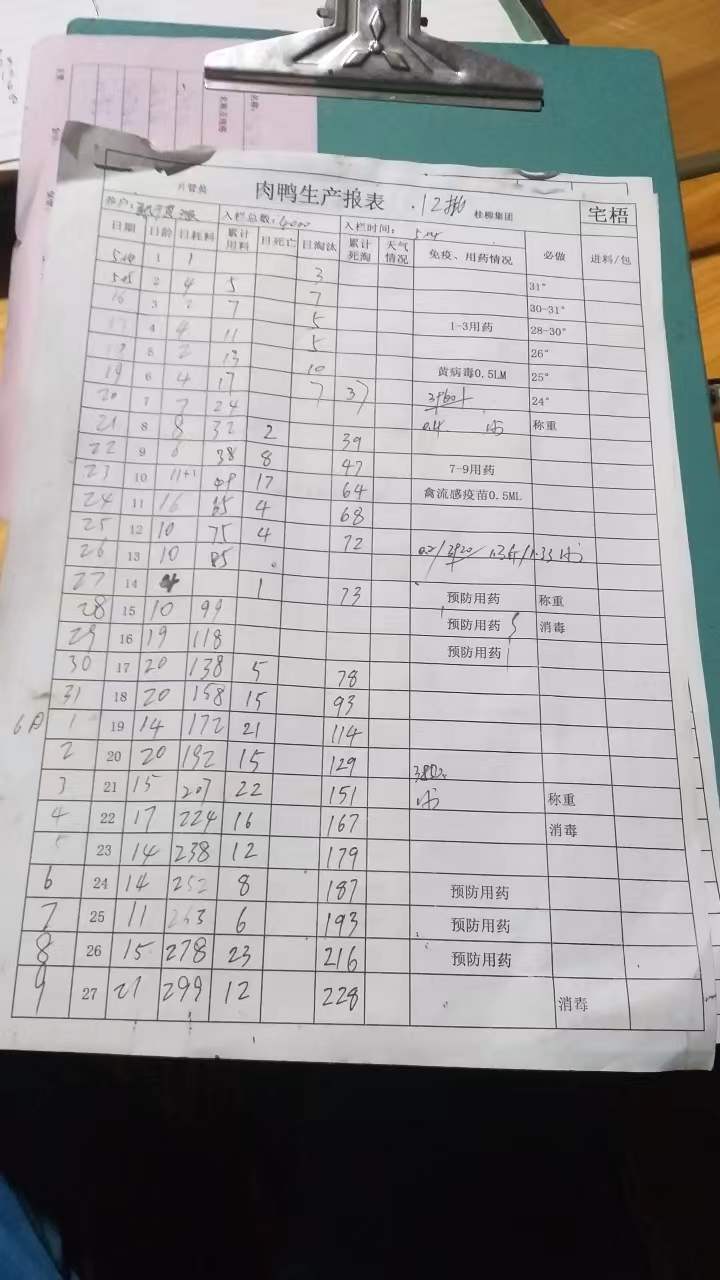 片管员 肉鸭生产报表 12批 桂柳集团 宅梧
养户: 入栏总数: 4000 入栏时间: 5.14
日期 日龄 日耗料 累计用料 日死亡 日淘汰 累计死淘 天气情况 免疫、用药情况 必做 进料/包
5.14 1 1 3 31°
5.15 2 4 5 7 30-31°
16 3 2 7 5 1-3用药 28-30°
17 4 4 11 5 26°
18 5 2 13 10 黄病毒0.5LM 25°
19 6 4 17 7 37 24°
20 7 7 24 称重
21 8 8 32 2 39
22 9 6 38 8 47 7-9用药
23 10 11+1 49 17 64 禽流感疫苗0.5ML
24 11 16 65 4 68
25 12 10 75 4 72
26 13 10 85
27 14 4 1 73 预防用药 称重
28 15 10 99 预防用药 消毒
29 16 19 118 预防用药
30 17 20 138 5 78
31 18 20 158 15 93
6月 1 19 14 172 21 114
2 20 20 192 15 129
3 21 15 207 22 151 称重
4 22 17 224 16 167 消毒
5 23 14 238 12 179
6 24 14 252 8 187 预防用药
7 25 11 263 6 193 预防用药
8 26 15 278 23 216 预防用药
9 27 21 299 12 228 消毒